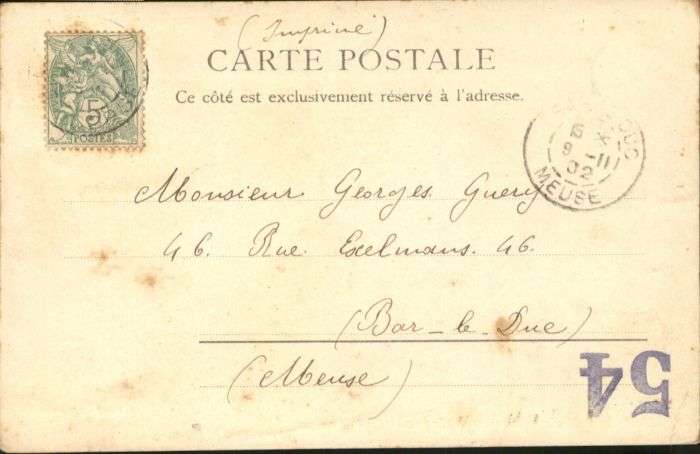 (Imprimé)
CARTE POSTALE
Ce côté est exclusivement réservé à l'adresse.
5
POSTES
DUC
9 -11
02
MEUSE
Monsieur Georges Guery
46. Rue Exelmans. 46.
(Bar-le-Duc)
(Meuse)
54